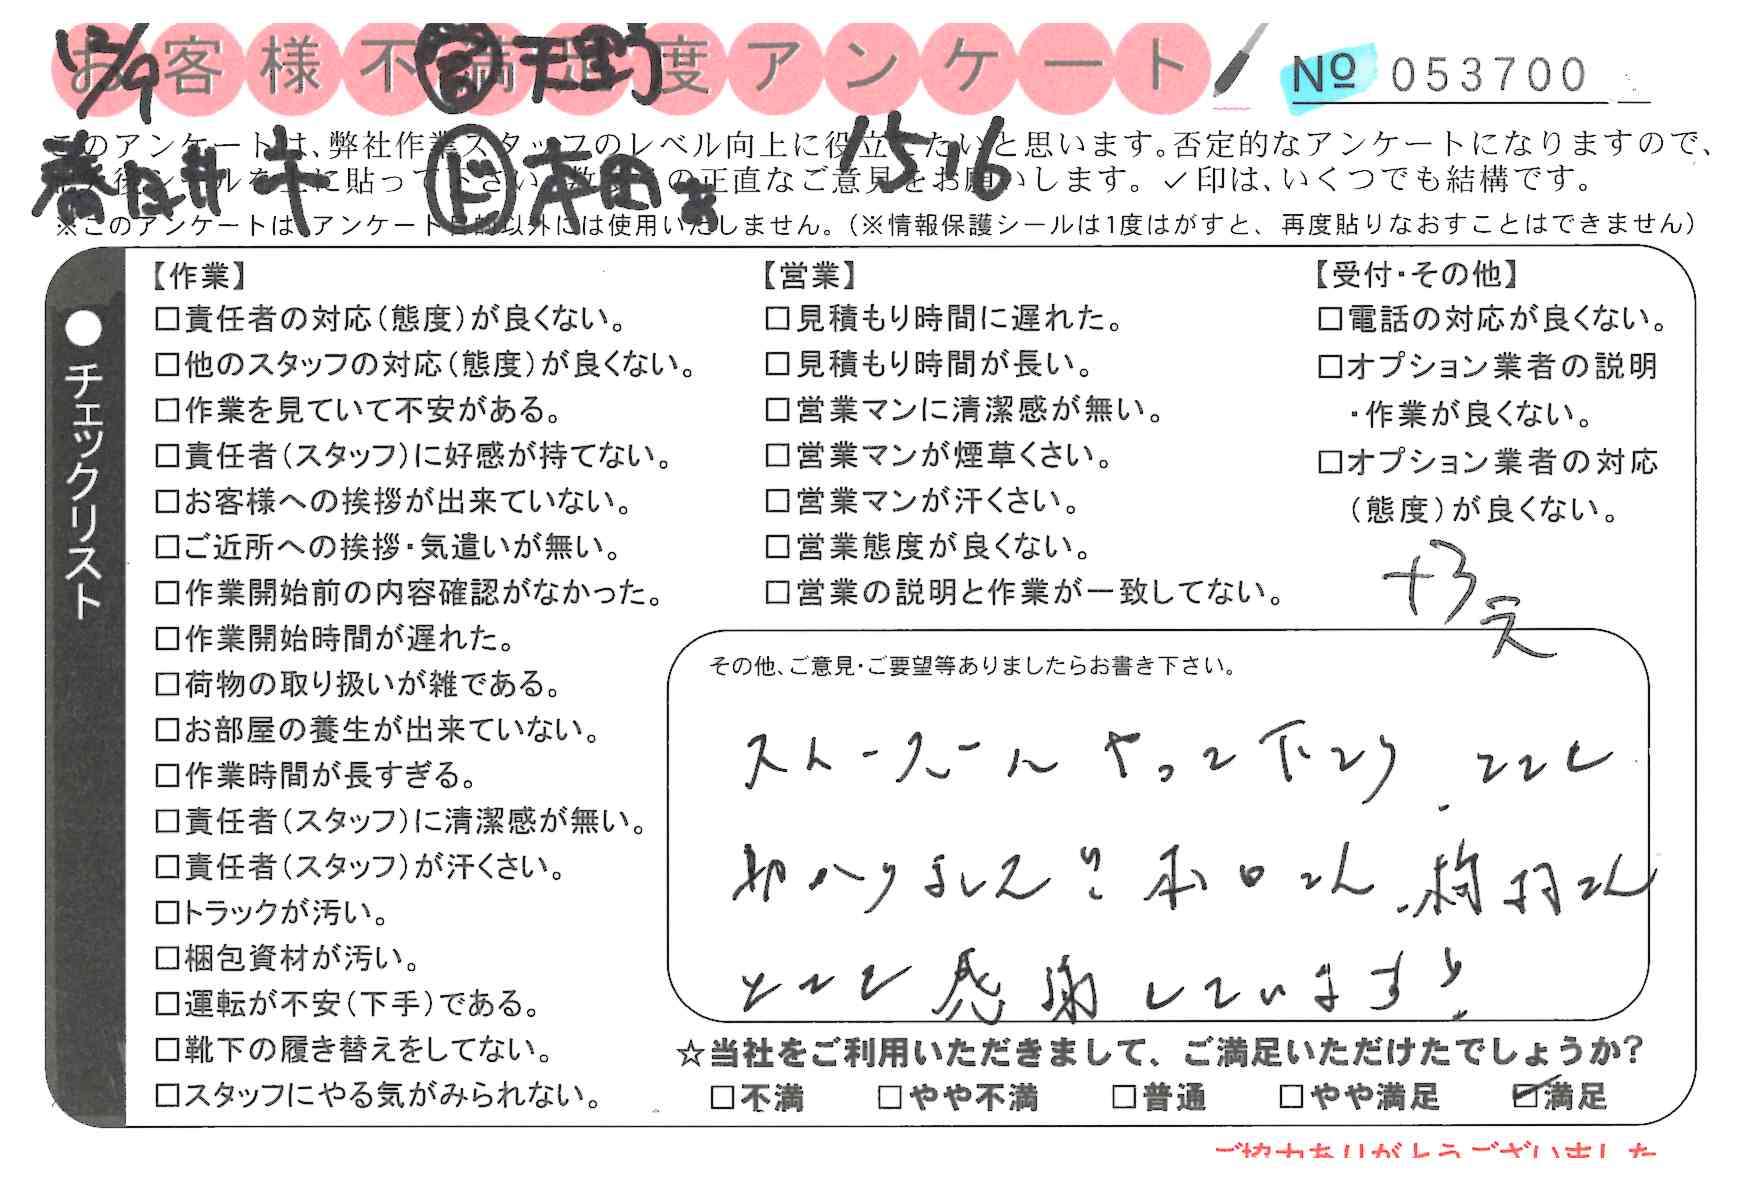 お客様不満足度アンケート
№ 053700
12/9 営 天野
春日井 ド 本田 1516
このアンケートは、弊社作業スタッフのレベル向上に役立てたいと思います。否定的なアンケートになりますので、
に貼って下さい の正直なご意見をお願いします。✓印は、いくつでも結構です。
※このアンケートは、アンケート目的以外には使用いたしません。（※情報保護シールは1度はがすと、再度貼りなおすことはできません）
●チェックリスト
【作業】
□責任者の対応（態度）が良くない。
□他のスタッフの対応（態度）が良くない。
□作業を見ていて不安がある。
□責任者（スタッフ）に好感が持てない。
□お客様への挨拶が出来ていない。
□ご近所への挨拶・気遣いが無い。
□作業開始前の内容確認がなかった。
□作業開始時間が遅れた。
□荷物の取り扱いが雑である。
□お部屋の養生が出来ていない。
□作業時間が長すぎる。
□責任者（スタッフ）に清潔感が無い。
□責任者（スタッフ）が汗くさい。
□トラックが汚い。
□梱包資材が汚い。
□運転が不安（下手）である。
□靴下の履き替えをしてない。
□スタッフにやる気がみられない。
【営業】
□見積もり時間に遅れた。
□見積もり時間が長い。
□営業マンに清潔感が無い。
□営業マンが煙草くさい。
□営業マンが汗くさい。
□営業態度が良くない。
□営業の説明と作業が一致してない。
【受付・その他】
□電話の対応が良くない。
□オプション業者の説明
・作業が良くない。
□オプション業者の対応
（態度）が良くない。
その他、ご意見・ご要望等ありましたらお書き下さい。
やって下さり、とても
助かりました! 本田さん、
とても感謝しています!
☆当社をご利用いただきまして、ご満足いただけたでしょうか?
□不満 □やや不満 □普通 □やや満足 ☑満足
ご協力ありがとうございました